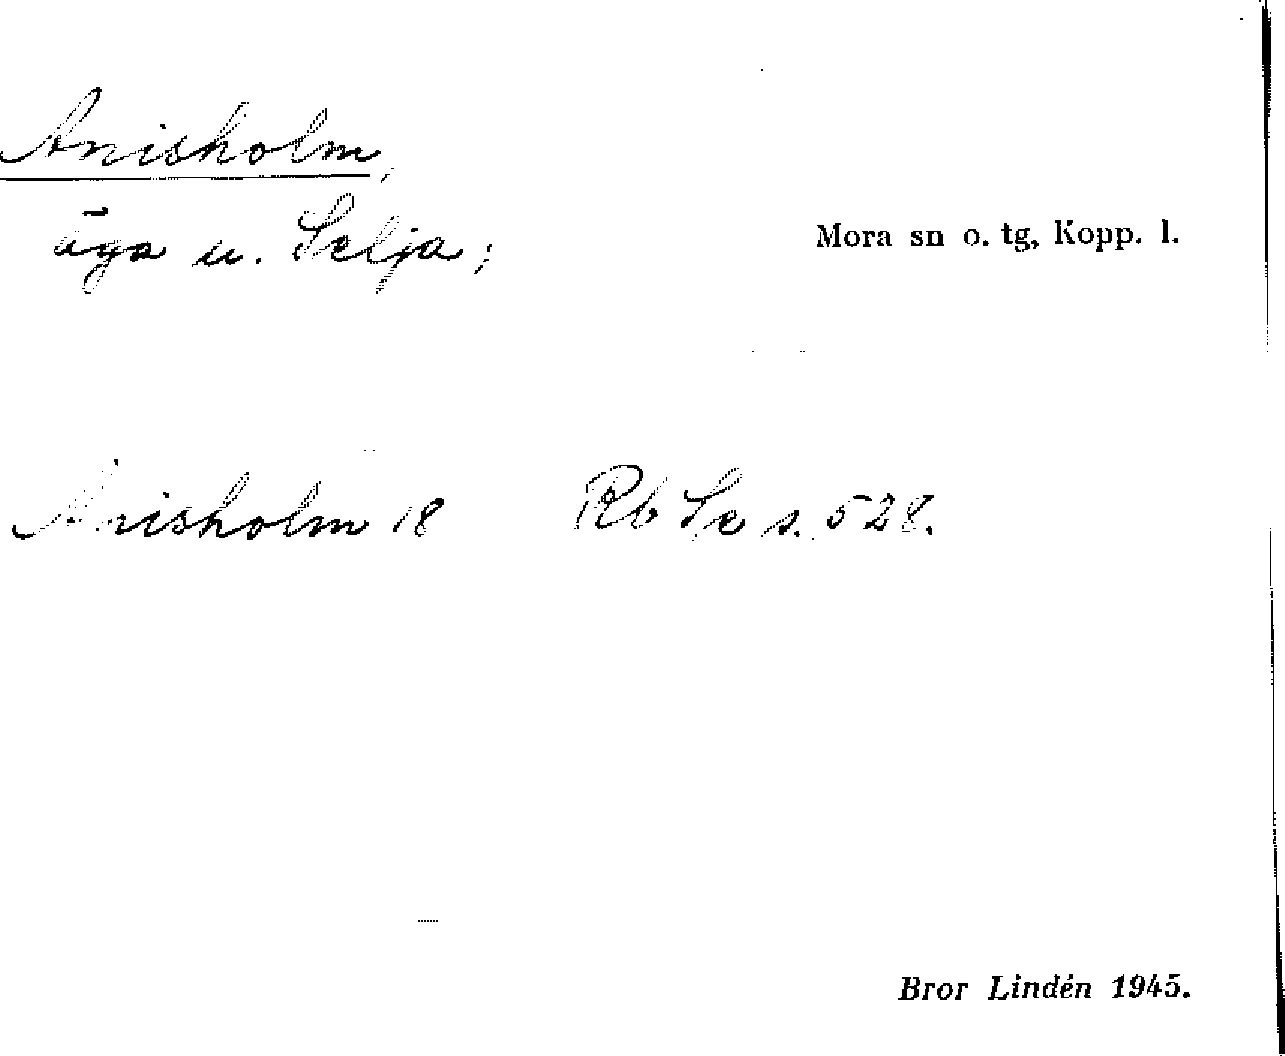 Anisholm,
äga u. Selja;
Mora sn o. tg, Kopp. l.
Anisholm 18 Rb Se s. 528.
Bror Lindén 1945.